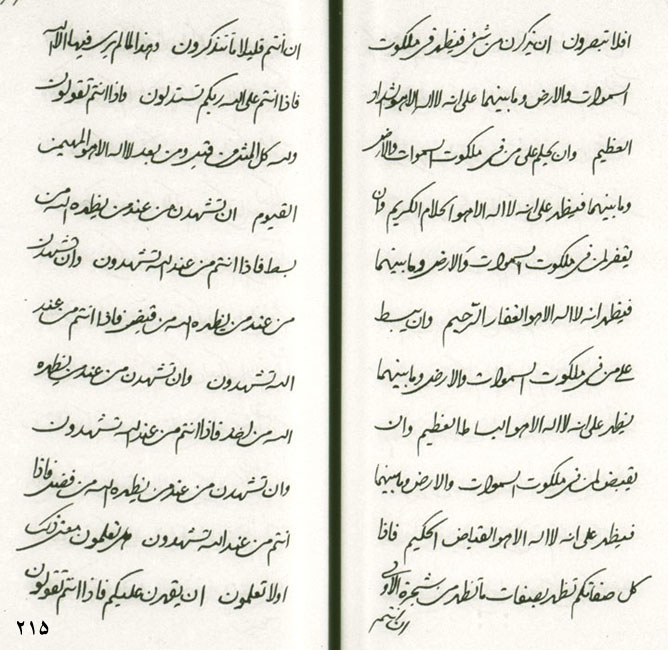 افلا تبصرون ان يذكرن من شئ فيظهر في ملكوت
السموات والارض وما بينهما على انه لا اله الا هو الشداد
العظيم وان يحلم على من في ملكوت السموات والارض
وما بينهما فيظهر على انه لا اله الا هو الحلام الكريم وان
يغفر لمن في ملكوت السموات والارض وما بينهما
فيظهر انه لا اله الا هو الغفار الرحيم وان يبسط
على من في ملكوت السموات والارض وما بينهما
يظهر على انه لا اله الا هو الباسط العظيم وان
يقبض لمن في ملكوت السموات والارض وما بينهما
فيظهر على انه لا اله الا هو القباض الحكيم فاذا
كل صفاتكم تظهر بصفات ما تظهر من شجرة الاولى
ان انتم
ان انتم قليلا ما تتذكرون وهذا لعالم يرى فيها الا الله
فاذا انتم على الله ربكم تستدلون واذا انتم تقولون
ولله كل المثل من قبل ومن بعد لا اله الا هو المهيمن
القيوم ان تشهدن من عند من يظهره الله من
بسط فاذا انتم من عند الله تشهدون وان تشهدن
من عند من يظهره الله من قبض فاذا انتم من عند
الله تشهدون وان تشهدن من عند من يظهره
الله من فاذا انتم من عند الله تشهدون
وان تشهدن من عند من يظهره الله من فضل فاذا
انتم من عند الله تشهدون هل تعلمون معنى ذلك
اولا تعلمون ان يقهرن عليكم فاذا انتم تقولون
٢١٥